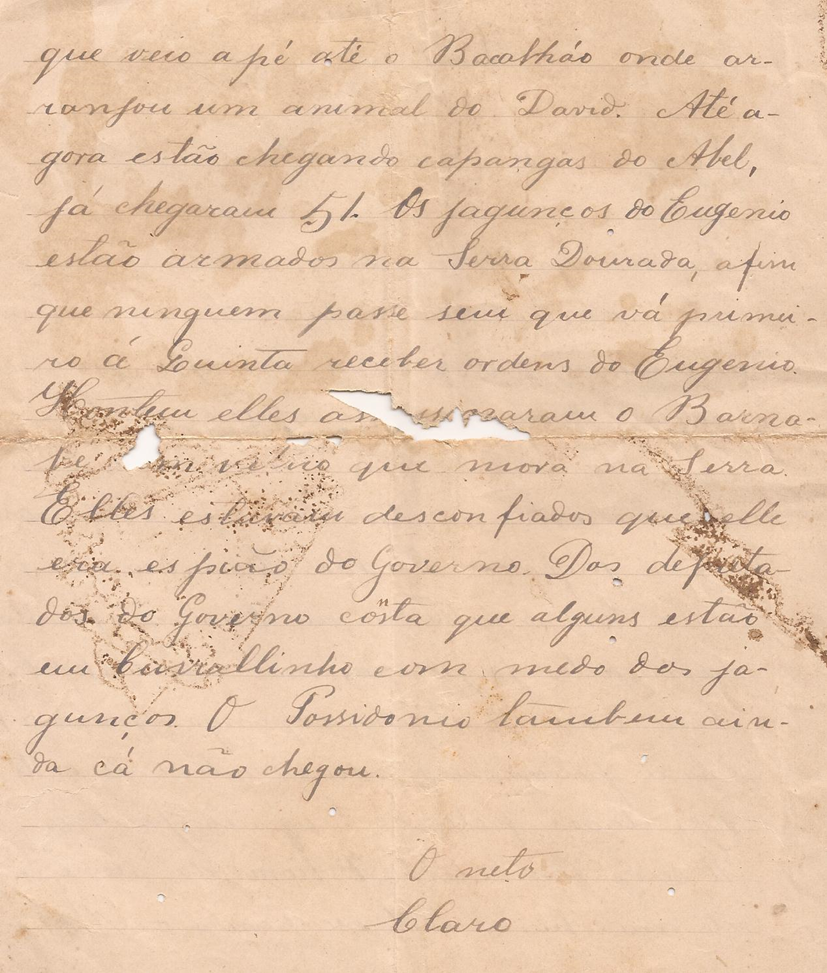 que veio a pé até o Bacalháo onde ar-
ranjou um animal do David. Até a-
gora estão chegando capangas do Abel,
já chegaram 51. Os jagunços do Eugenio
estão armados na Serra Dourada, afim
que ninguem passe sem que vá primei-
ro á Quinta receber ordens do Eugenio.
Hontem elles assassinaram o Barna-
bé que mora na Serra.
Elles estavam desconfiados que elle
era espião do Governo. Dos deputa-
dos do Governo consta que alguns estão
em Curralinho com medo dos ja-
gunços. O Possidonio tambem ain-
da cá não chegou.
O neto
Claro